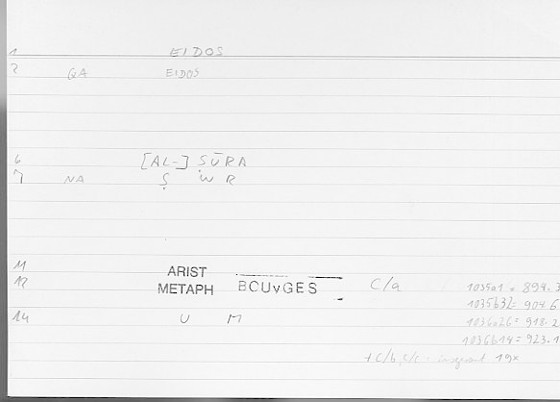 1 EIDOS
2 QA EIDOS
6 [AL-] ṢŪRA
7 NA Ṣ W R
11
12 ARIST METAPH BOUYGES C/a
1035a1 = 894.3
1035b32 = 904.6
14 U M
1036a26 = 918.2
1036b14 = 923.1
+ C/b, C/c · 19x